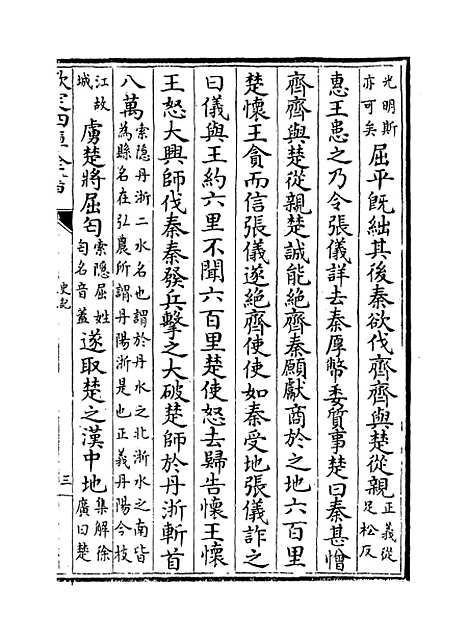 光明斯亦可矣屈平既絀其後秦欲伐齊齊與楚從親正義從足松反
惠王患之乃令張儀詳去秦厚幣委質事楚曰秦甚憎
齊齊與楚從親楚誠能絶齊秦願獻商於之地六百里
楚懷王貪而信張儀遂絶齊使使如秦受地張儀詐之
曰儀與王約六里不聞六百里楚使怒去歸告懷王懷
王怒大興師伐秦秦發兵擊之大破楚師於丹淅斬首
八萬索隱丹淅二水名也謂於丹水之北淅水之南皆為縣名在弘農所謂丹陽淅是也正義丹陽今枝
江故城虜楚將屈匄索隱屈姓匄名音蓋遂取楚之漢中地集解徐廣曰楚
欽定四庫全書
史記
三